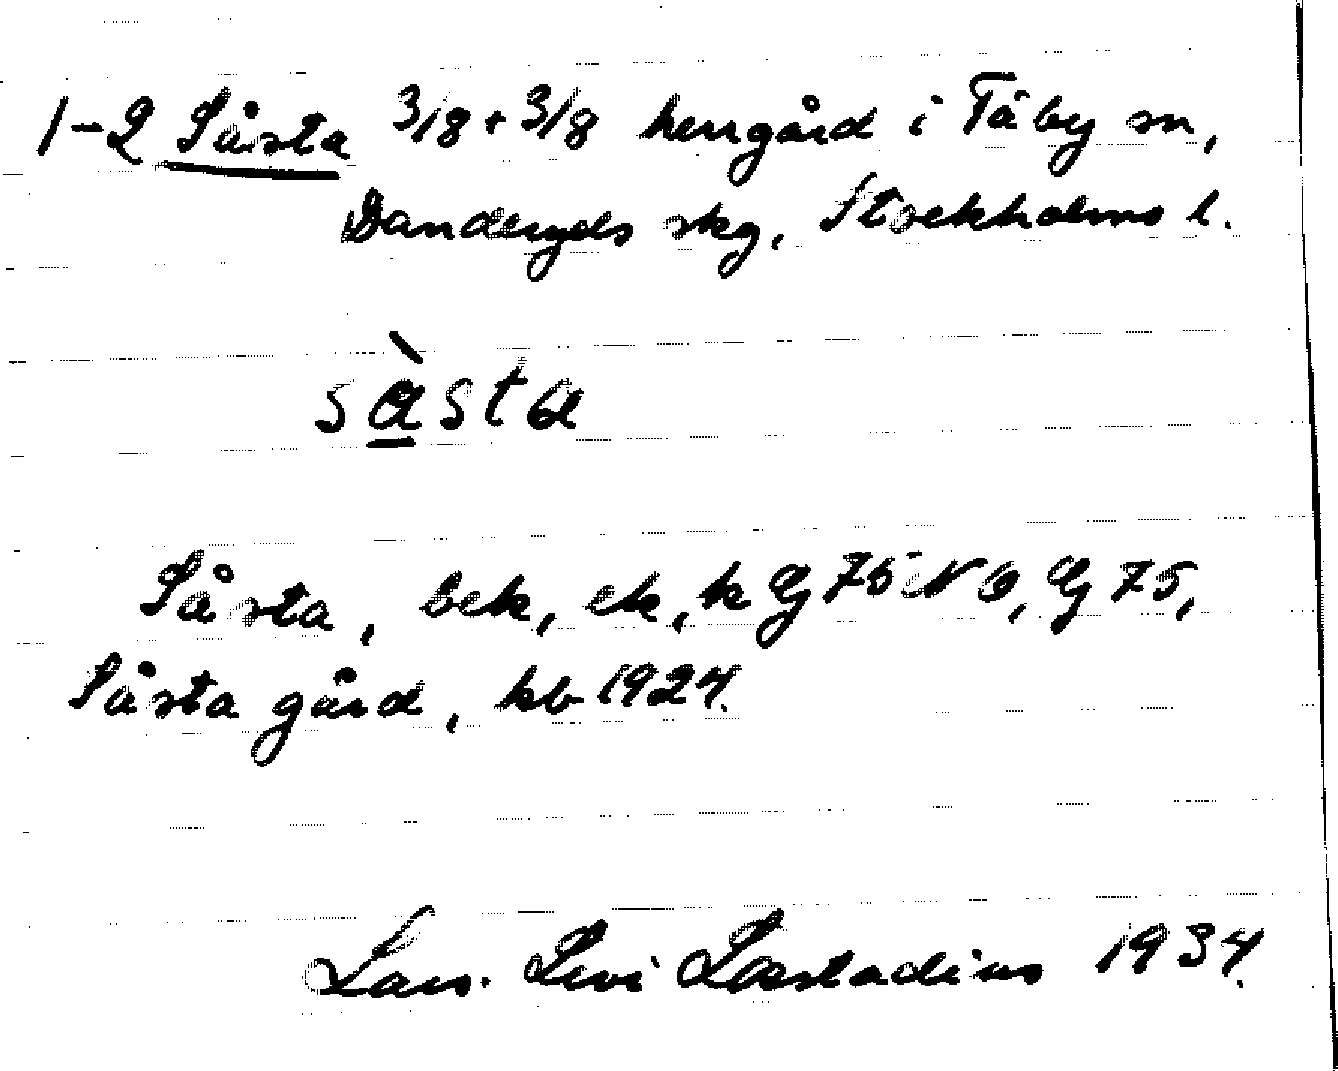 1-2 Såsta 3/8 + 3/8 herrgård i Täby sn,
Danderyds skg, Stockholms l.
sàsta
Såsta, bek, ek, k Gj 75 NO, Gj 75,
Såsta gård, kb 1924.
Lars Levi Læstadius 1934.